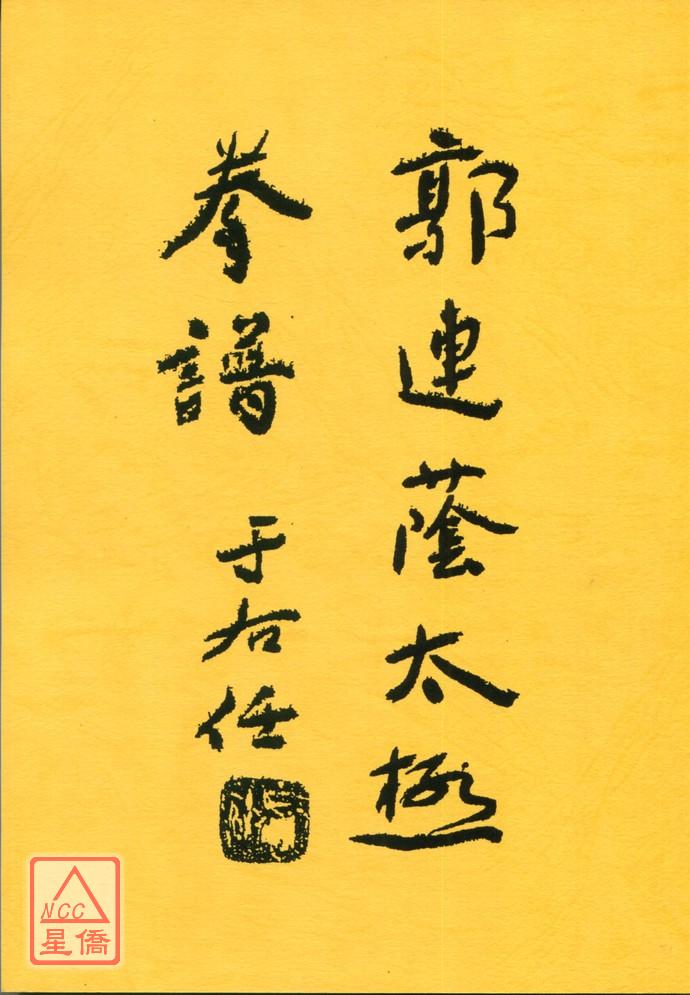 郭連蔭太極
拳譜
于右任
NCC
星僑